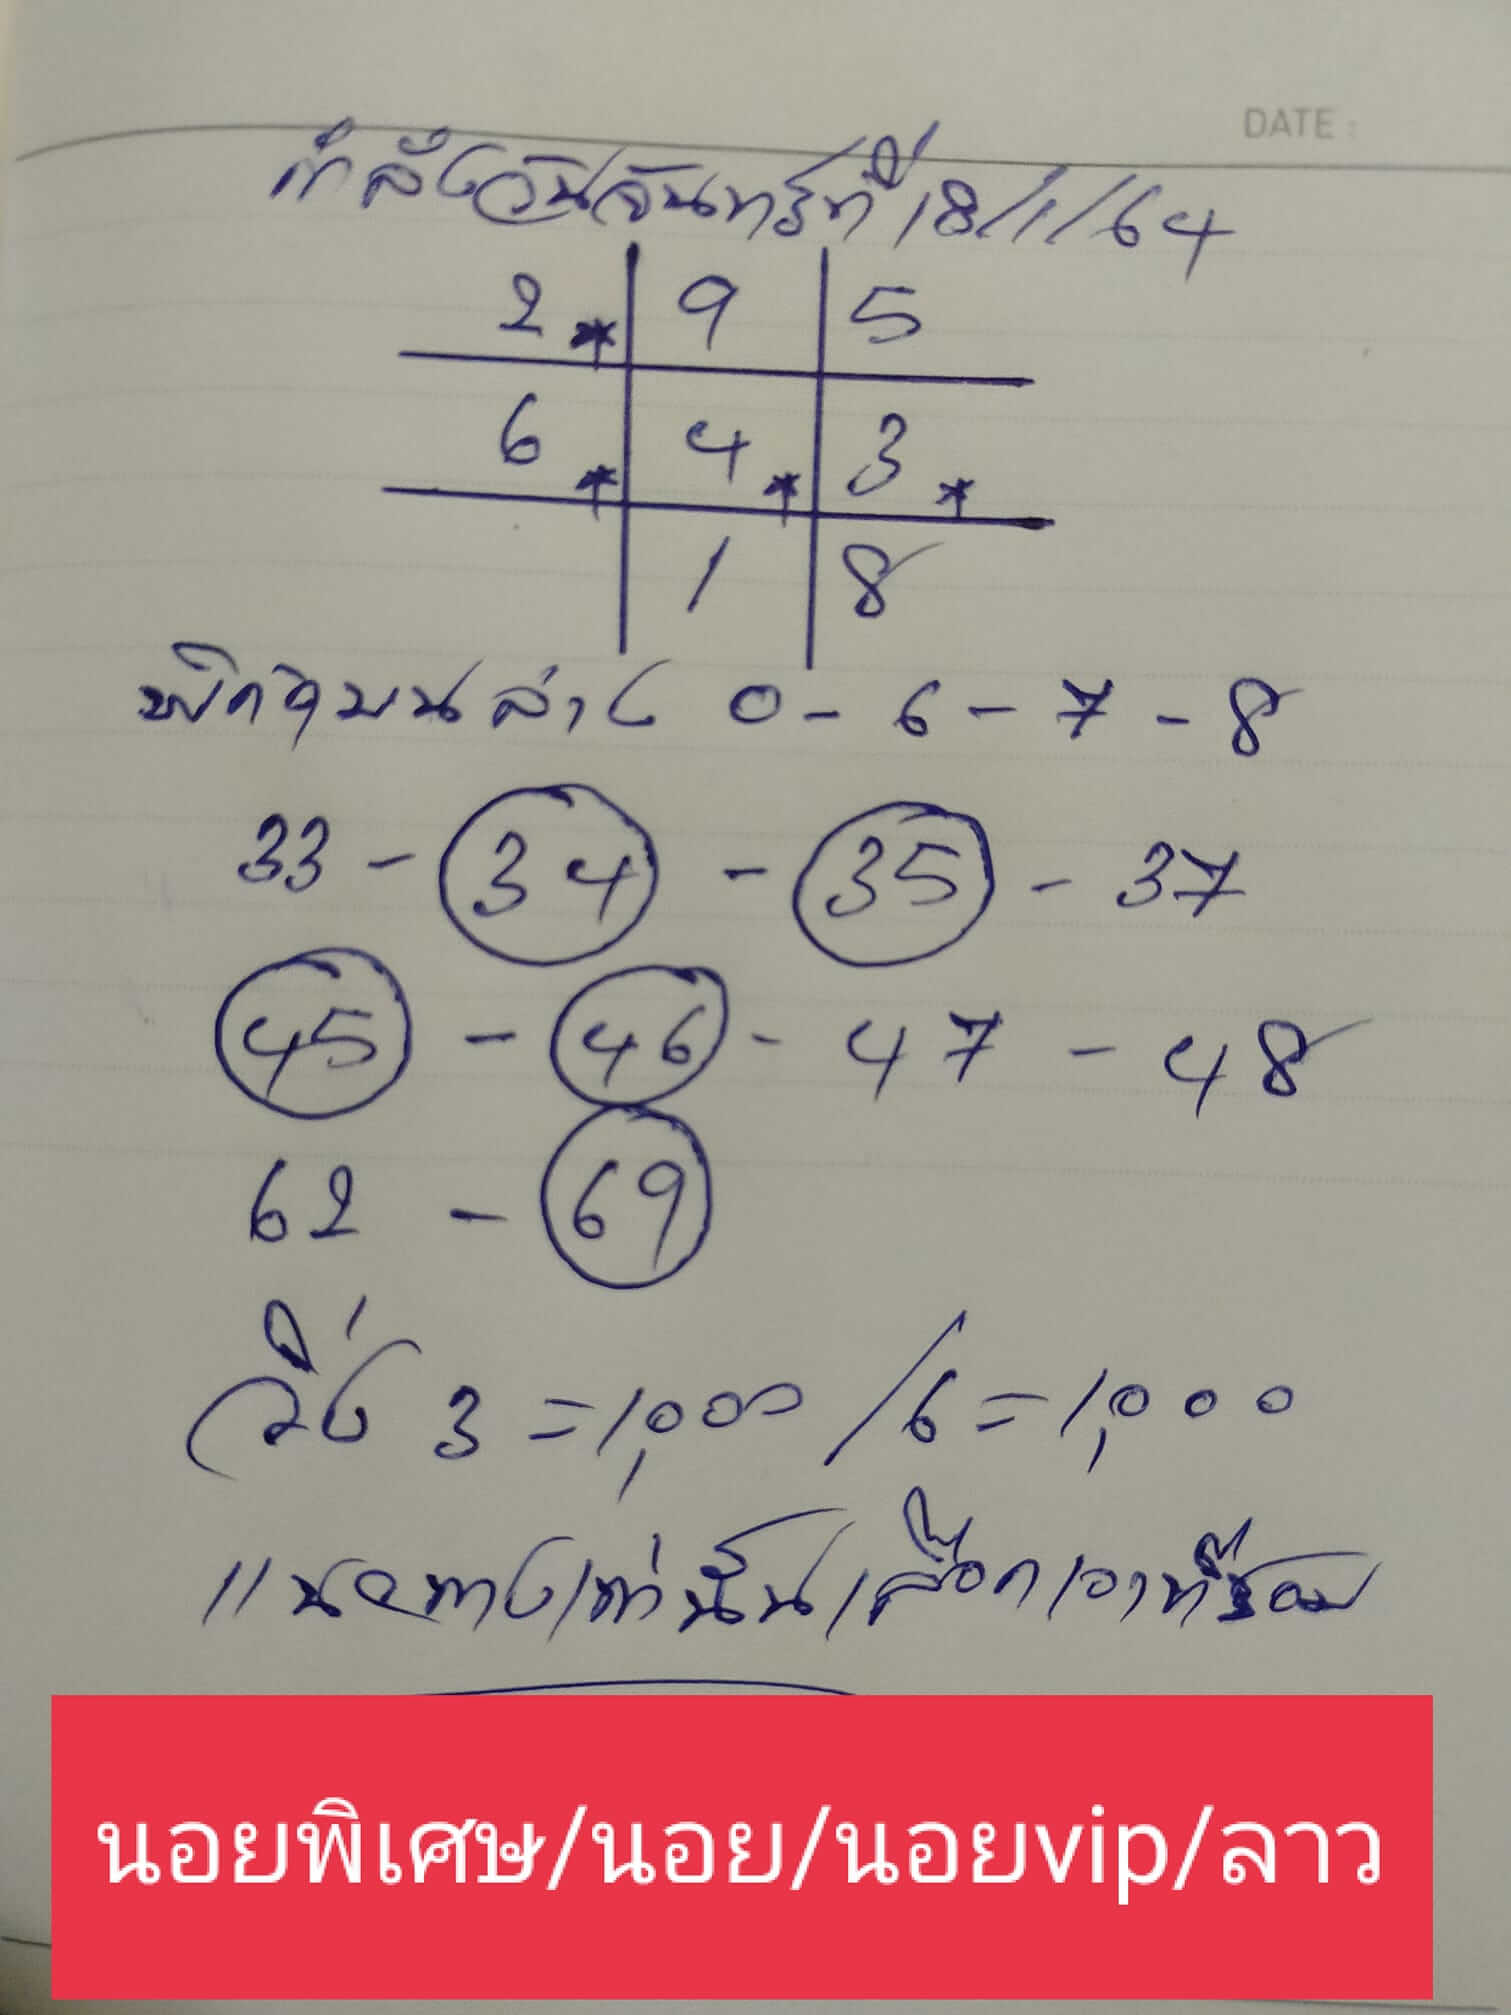 DATE :
กำลังวันจันทร์ที่ 18/1/64
2* 9 5
6* 4* 3*
1 8
พิกัดบนล่าง 0 - 6 - 7 - 8
33 - 34 - 35 - 37
45 - 46 - 47 - 48
62 - 69
วิ่ง 3 = 1,000 / 6 = 1,000
แนวทางเท่านั้นเลือกเอาที่ชอบ
นอยพิเศษ/นอย/นอยvip/ลาว